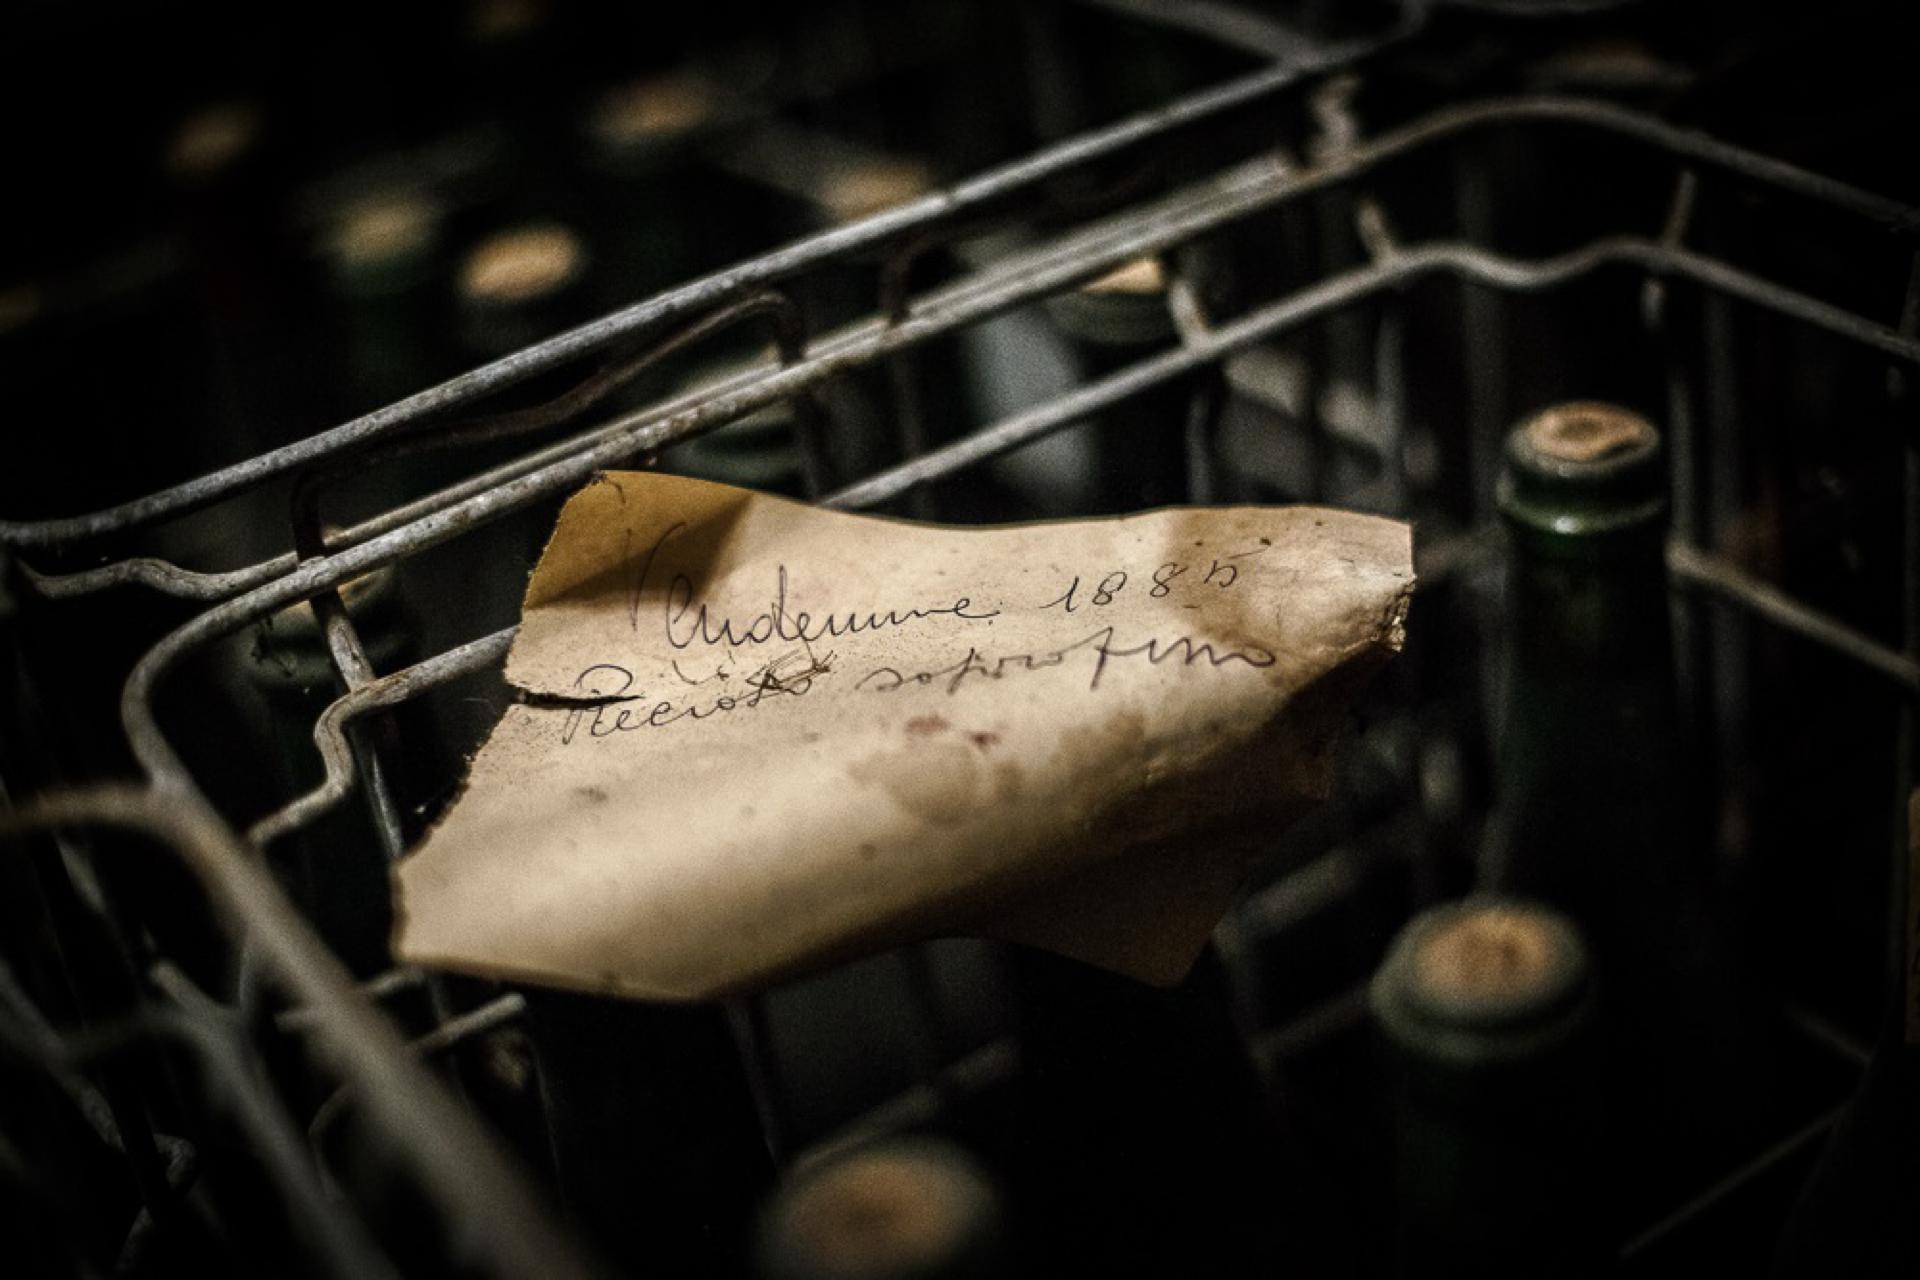 Vendemmie 1885
Recioto soprafino